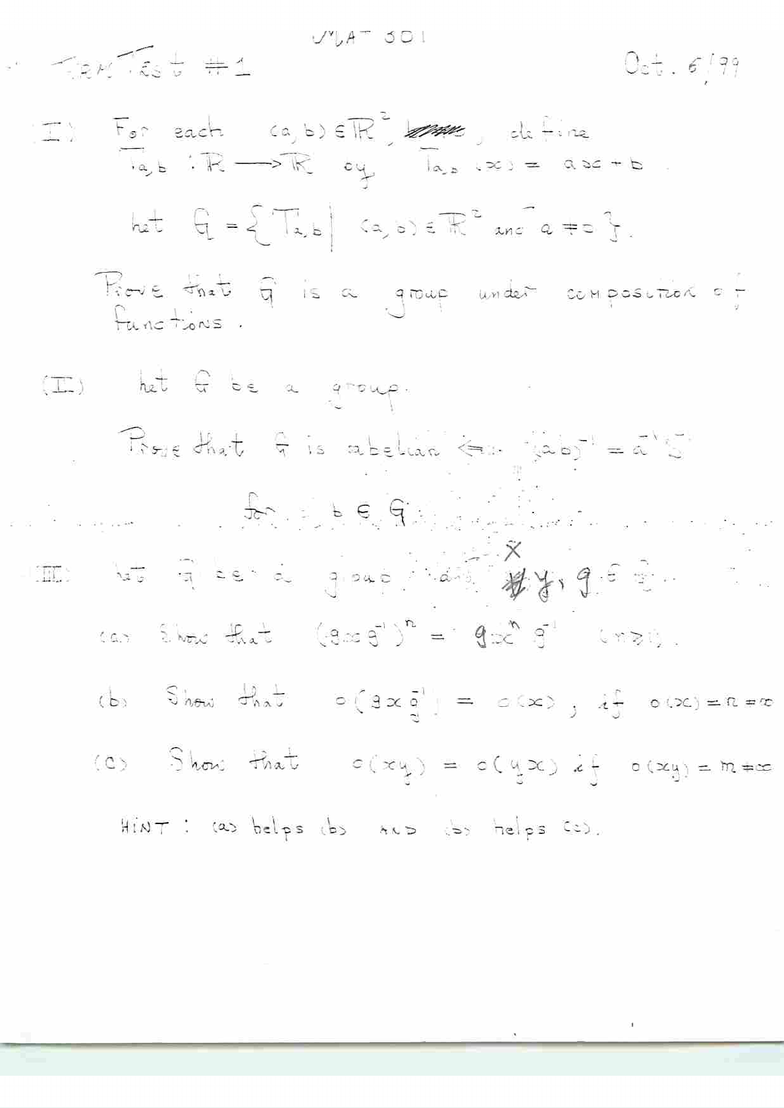 MAT 301
TERM TEST #1 Oct. 5/99
I) For each (a,b) ∈ ℝ², define
T_{a,b} : ℝ ⟶ ℝ by T_{a,b}(x) = ax + b.
Let G = {T_{a,b} | (a,b) ∈ ℝ² and a ≠ 0}.
Prove that G is a group under composition of
functions.
(II) Let G be a group.
Prove that G is abelian ⇐ (ab)⁻¹ = a⁻¹b⁻¹
for b ∈ G
(III) Let G be a group and x y, g ∈ G
(a) Show that (gxg⁻¹)ⁿ = gxⁿg⁻¹ (n≥1).
(b) Show that o(gxg⁻¹) = o(x), if o(x) = n ≠ ∞
(c) Show that o(xy) = o(yx) if o(xy) = m ≠ ∞
HINT : (a) helps (b) AND (b) helps (c).